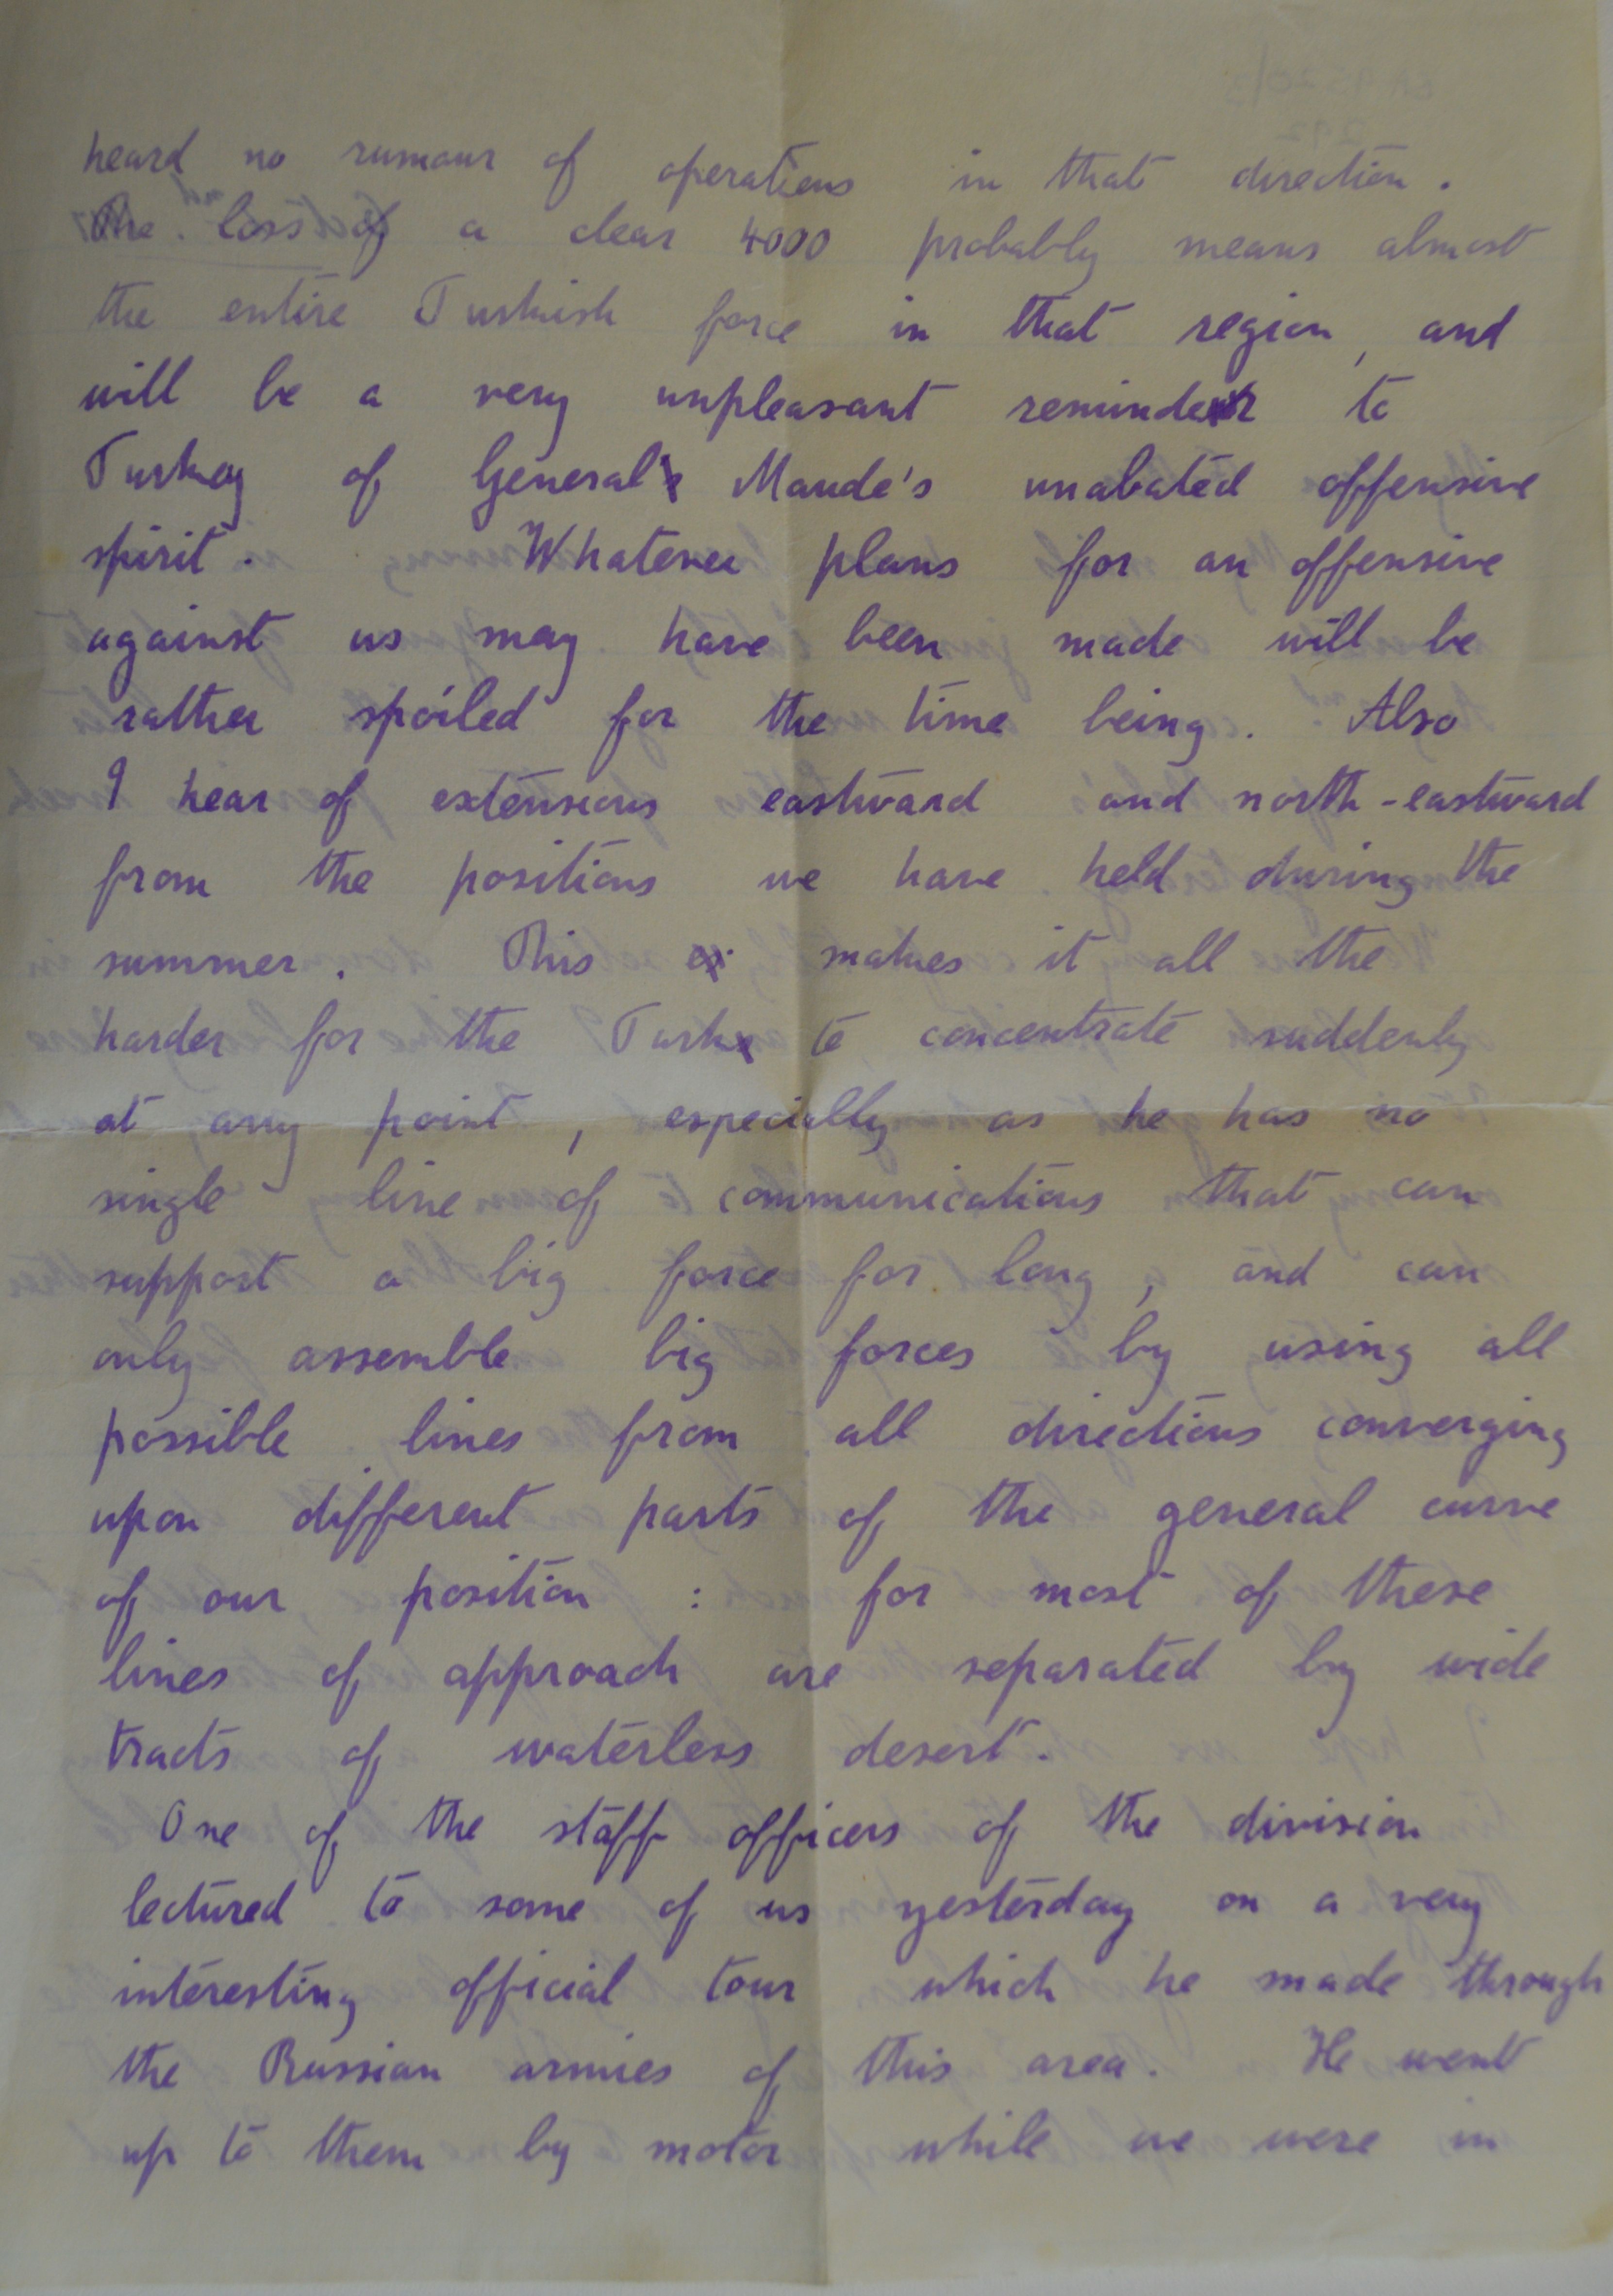 heard no rumour of operations in that direction.
The loss of a clear 4000 probably means almost
the entire Turkish force in that region, and
will be a very unpleasant reminder to
Turkey of General Maude's unabated offensive
spirit. Whatever plans for an offensive
against us may have been made will be
rather spoiled for the time being. Also
I hear of extensions eastward and north-eastward
from the positions we have held during the
summer. This makes it all the
harder for the Turk to concentrate suddenly
at any point, especially as he has no
single line of communications that can
support a big force for long, and can
only assemble big forces by using all
possible lines from all directions converging
upon different parts of the general curve
of our position : for most of these
lines of approach are separated by wide
tracts of waterless desert.
One of the staff officers of the division
lectured to some of us yesterday on a very
interesting official tour which he made through
the Russian armies of this area. He went
up to them by motor while we were in